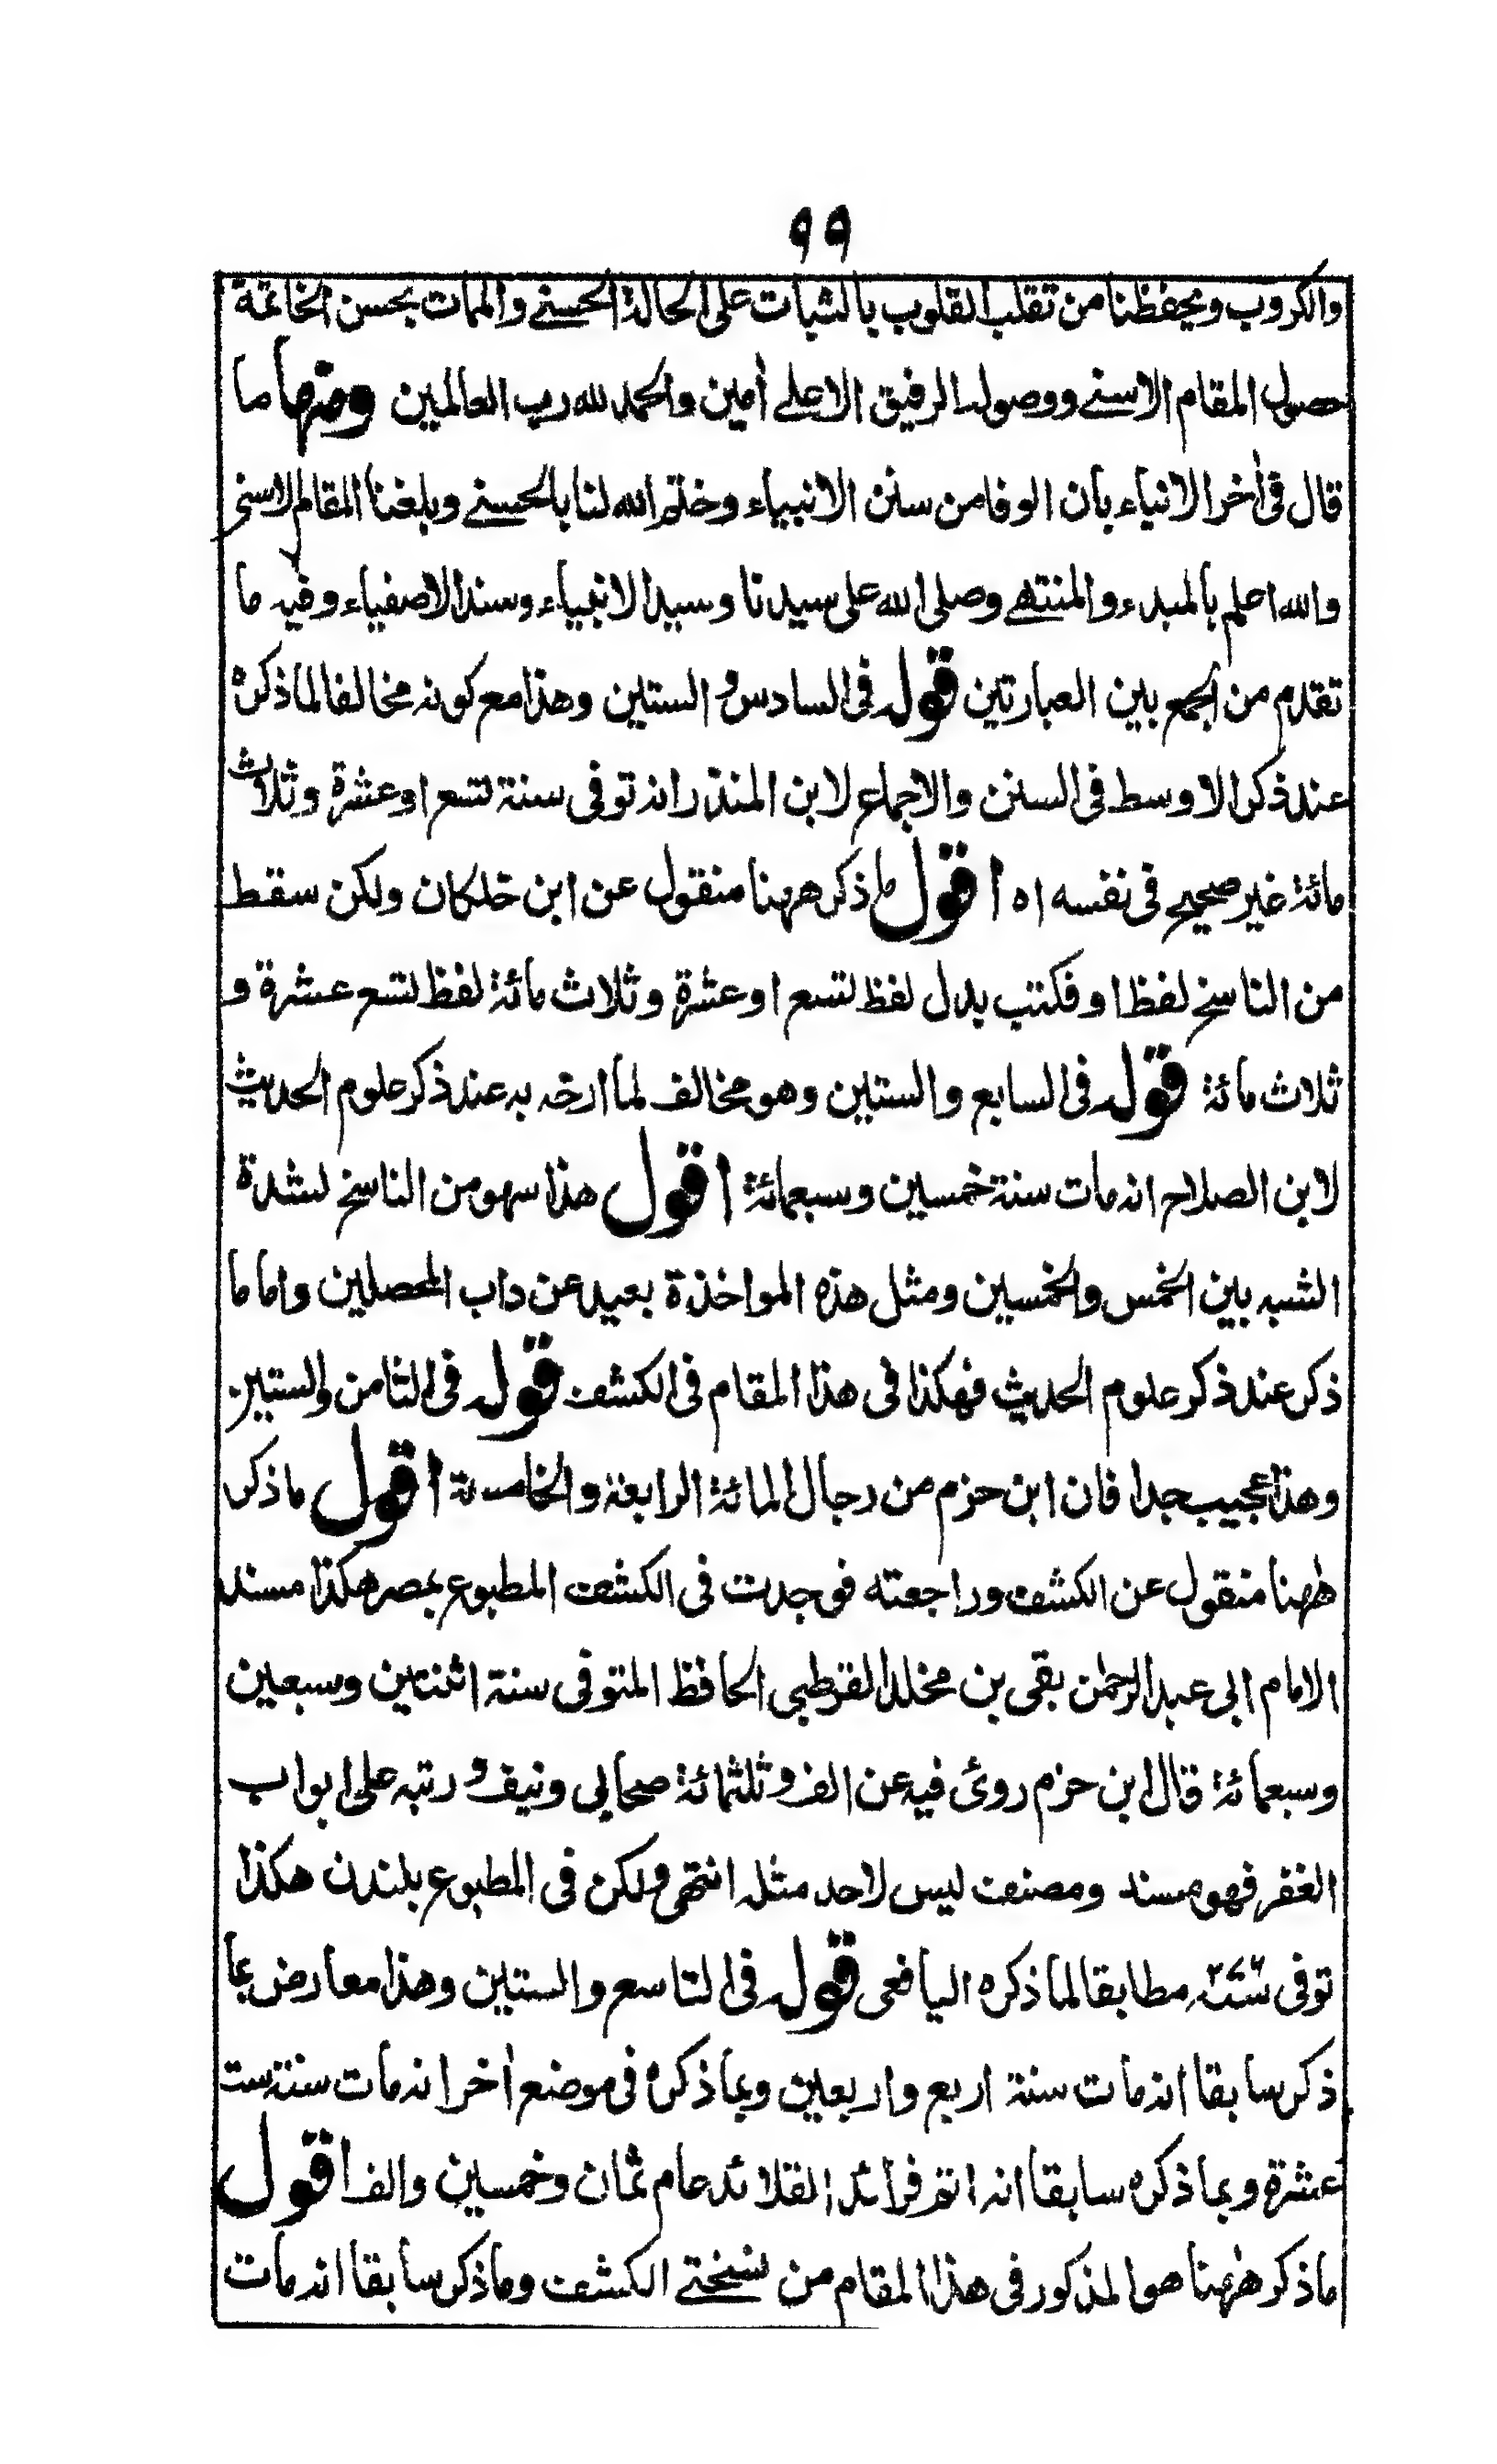 ٩٩
والكروب ويحفظنا من تقلب القلوب بالثبات على الحالة الحسنے والممات بحسن الخاتمة
حصول المقام الاسنے ووصول الرفيق الاعلے أمين والحمد لله رب العالمين ومنها ما
قال فى أخر الانباء بان الوفا من سنن الانبياء وختم الله لنا بالحسنے وبلغنا المقام الاسنى
والله اعلم بالمبدء والمنتهے وصلى الله على سيدنا وسيد الانبياء وسند الاصفياء وفيه ما
تقدم من الجمع بين العبارتين قوله فى السادس والستين وهذا مع كونه مخالفا لما ذكره
عند ذكر الاوسط فى السنن والاجماع لابن المنذر انه توفى سنة تسع او عشرة وثلاث
مائة غير صحيح فى نفسه اه اقول ما ذكر ههنا منقول عن ابن خلكان ولكن سقط
من الناسخ لفظ او فكتب بدل لفظ تسع او عشرة وثلاث مائة لفظ تسع عشرة و
ثلاث مائة قوله فى السابع والستين وهو مخالف لما ارخه به عند ذكر علوم الحديث
لابن الصلاح انه مات سنة خمسين وسبعمائة اقول هذا سهو من الناسخ لشدة
الشبه بين الخمس والخمسين ومثل هذه المواخذة بعيد عن داب المحصلين واما ما
ذكر عند ذكر علوم الحديث فهكذا فى هذا المقام فى الكشف قوله فى الثامن والستين
وهذا عجيب جدا فان ابن حزم من رجال المائة الرابعة والخامسة اقول ما ذكر
ههنا منقول عن الكشف وراجعته فوجدت فى الكشف المطبوع بمصر هكذا مسند
الامام ابى عبد الرحمٰن بقى بن مخلد القرطبى الحافظ المتوفى سنة اثنتين وسبعين
وسبعمائة قال ابن حزم روى فيه عن الف وثلثمائة صحابى ونيف ورتبه على ابواب
الفقه فهو مسند ومصنف ليس لاحد مثله انتهى ولكن فى المطبوع بلندن هكذا
توفى سنة ٢٧٢ مطابقا لما ذكره اليافعى قوله فى التاسع والستين وهذا معارض بما
ذكر سابقا انه مات سنة اربع واربعين وبما ذكره فى موضع أخر انه مات سنة ست
عشرة وبما ذكره سابقا انه اتم فرائد القلائد عام ثمان وخمسين والف اقول
ما ذكر ههنا هو المذكور فى هذا المقام من نسختے الكشف وما ذكر سابقا انه مات